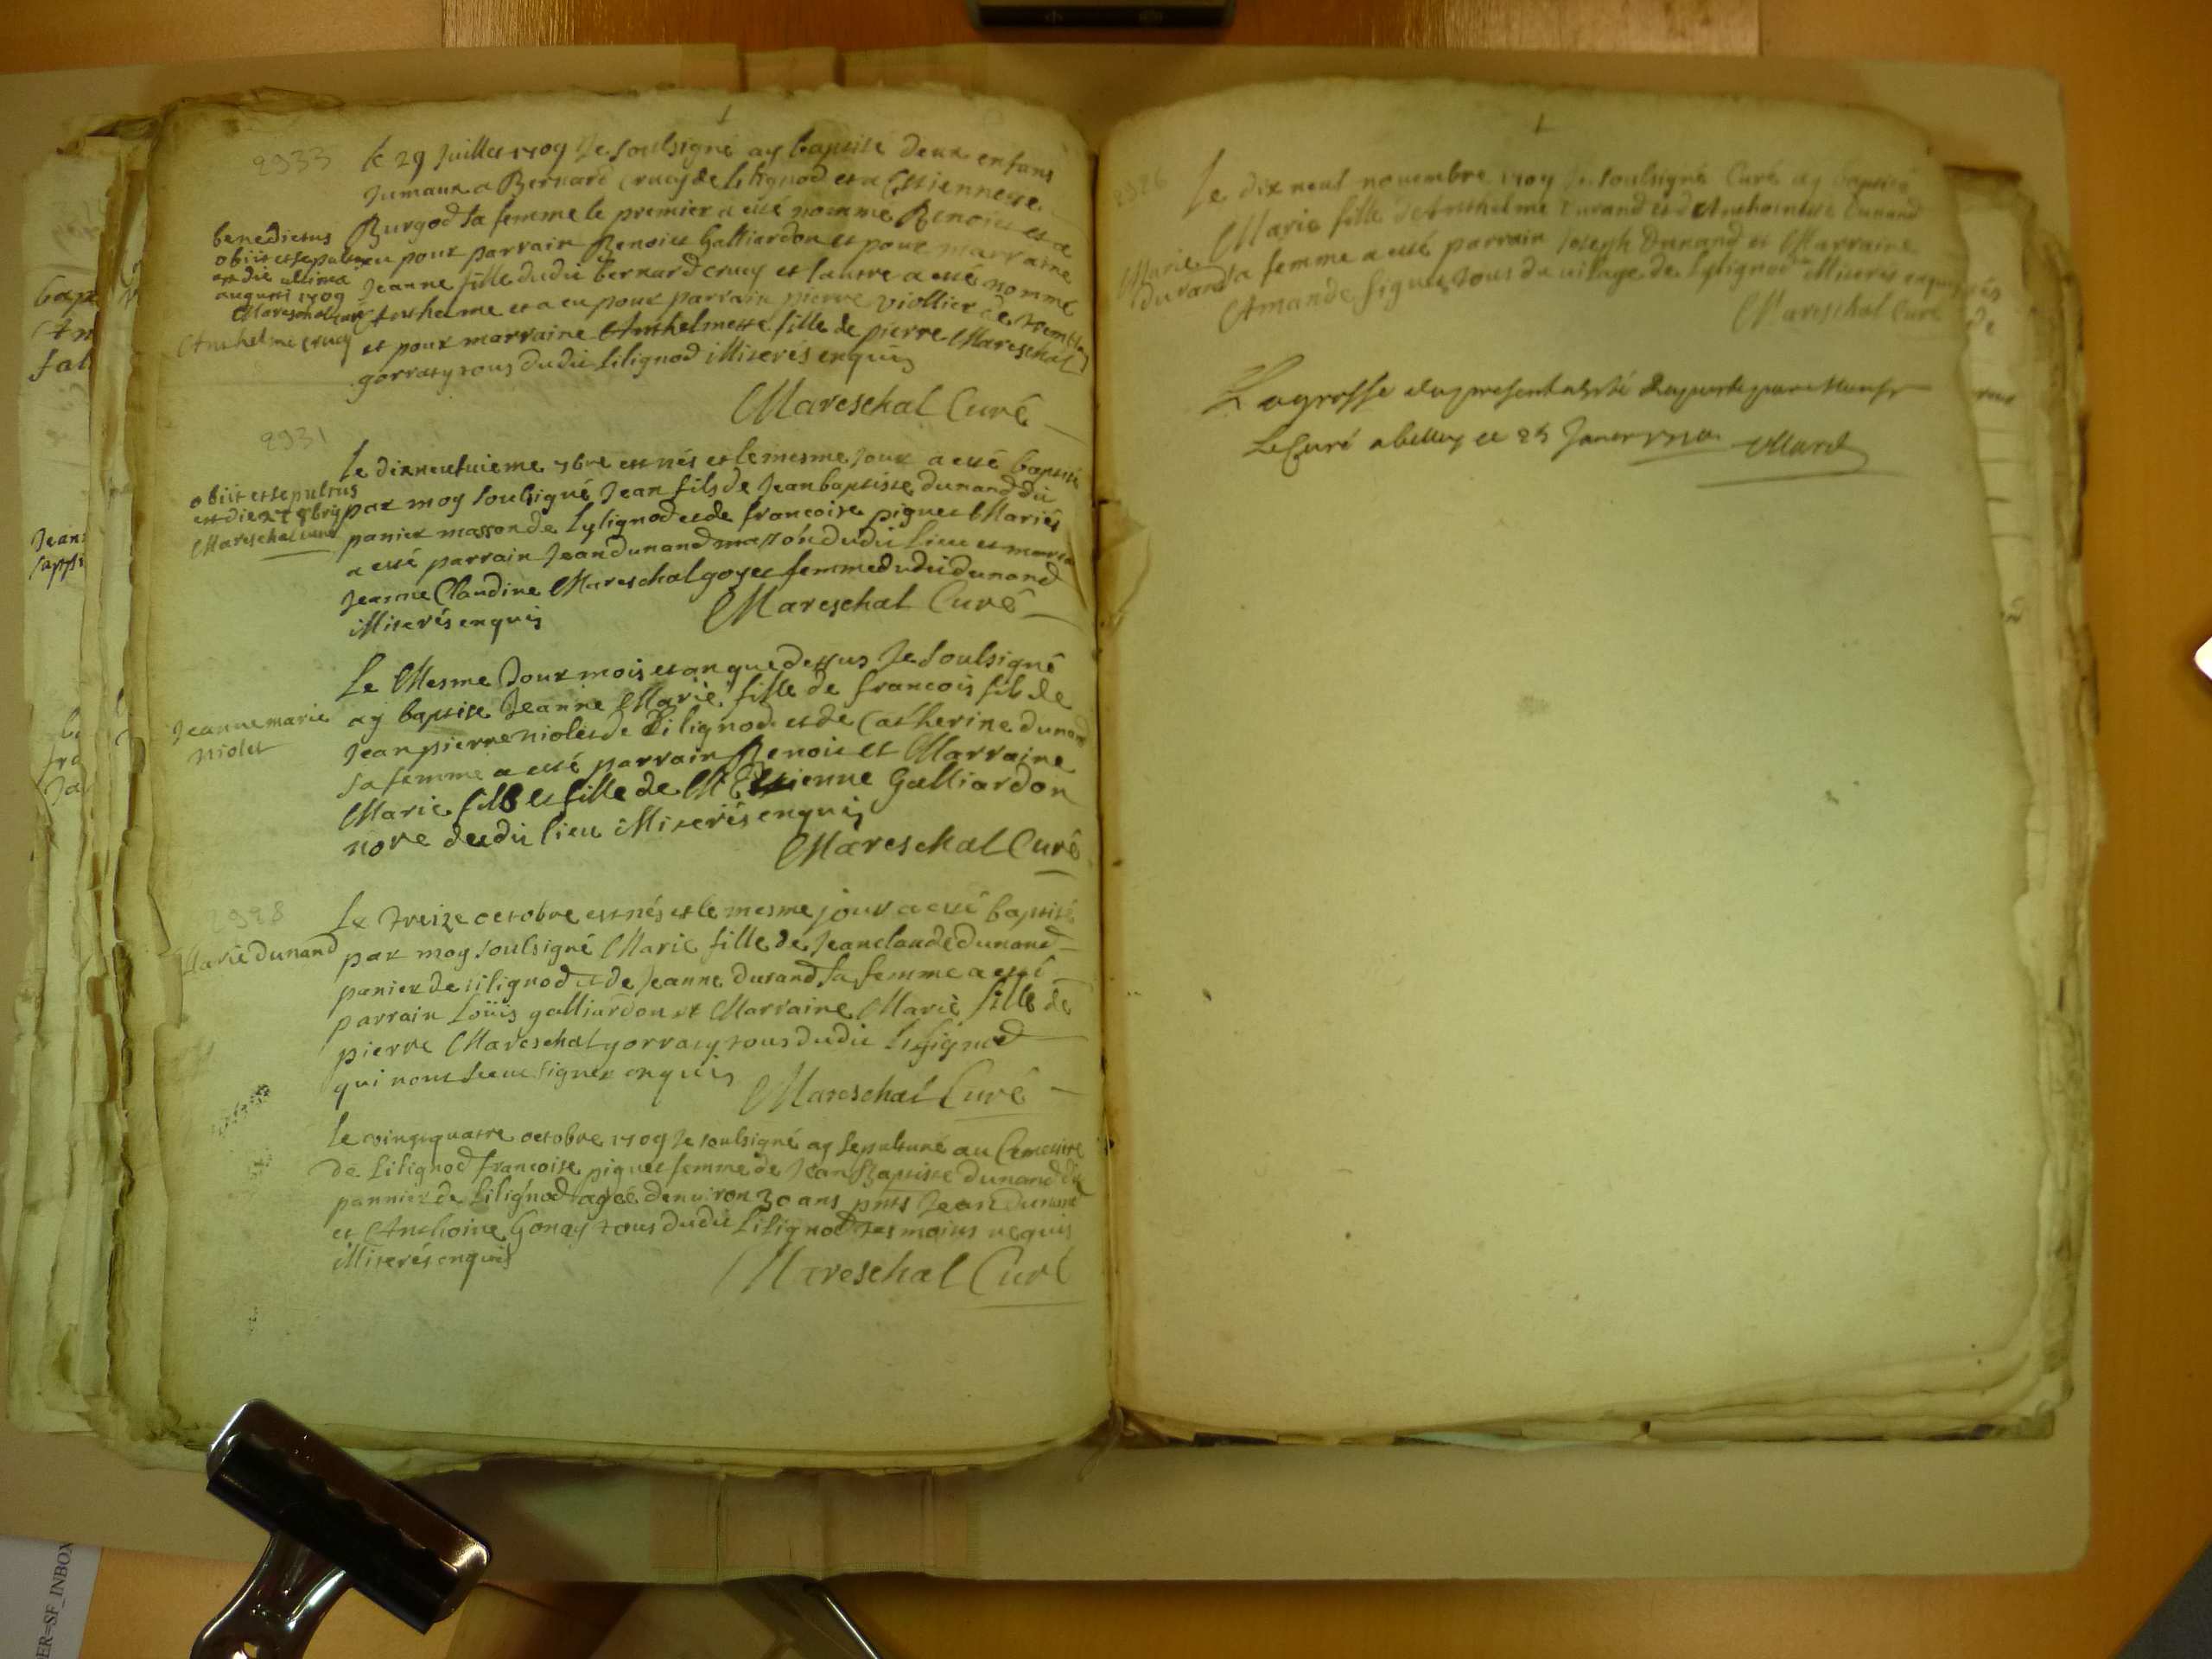 2933
le 29 Juillet 1709 Je soulsigné ay baptisé deux enfans
Jumaux a Bernard crucy de Lilignod et a Estiennette
Burgod sa femme le premier a esté nomme Benoict et a
eu pour parrain Benoict Galliardon et pour marraine
Jeanne fille dudit bernard crucy et lautre a esté nomme
Anthelme et a eu pour parrain pierre viollier de
et pour marraine Anthelmette fille de pierre Mareschal
gorraty tous dudit Lilignod illiterés enquis
Mareschal Curé
benedictus
obiit et sepultus
est die ultima
augusti 1709
Mareschal curé
Anthelme crucy
2931
le dixneufuieme 7bre est nés et le mesme jour a esté baptisé
par moy soulsigné Jean fils de Jean baptiste dunand dit
panier masson de Lylignod et de francoise piguet Mariés
a esté parrain Jean dunand masson dudit lieu et
Jeanne Claudine Mareschal goyet femme dudit dunand
illiterés enquis
Mareschal Curé
obiit et sepultus
est die 27 8bris
Mareschal curé
Le Mesme Jour mois et an que dessus Je soulsigné
ay baptise Jeanne Marie fille de francois fils de
Jean pierre niolet de Lilignod et de Catherine dunand
sa femme a esté parrain Benoict et Marraine
Marie fils et fille de M Estienne Galliardon
nore dudit lieu illiterés enquis
Mareschal Curé
Jeanne marie
niolet
2928
Le treize octobre est nés et le mesme jour a esté baptisé
par moy soulsigné Marie fille de Jean claude dunand
panier de lilignod et de Jeanne durand sa femme a esté
parrain Loüis galliardon et Marraine Marie fille de
pierre Mareschal gorraty tous dudit lilignod
qui nont sceut signer enquis
Mareschal Curé
Marie dunand
le vingtquatre octobre 1709 Je soulsigné ay sepulturé au Cemetire
de Lilignod francoise piguet femme de Jean Baptiste dunand dit
pannier de Lilignod agée denuiron 30 ans pnts Jean dunand
et Anthoine Gonay tous dudit Lilignod tesmoins requis
illiterés enquis
Mareschal Curé
2926
Le dix neuf nouembre 1709 Je soulsigné Curé ay baptisé
Marie fille de Anthelme durand et de Anthoinette dunand
sa femme a esté parrain Joseph Dunand et Marraine
Amande piguet tous du uillage de Lylignod illiterés enquis
Mareschal Curé
Marie
durand
La grosse du present a esté Raporté par Monsr
Le Curé a belley ce 25 Januer 1710